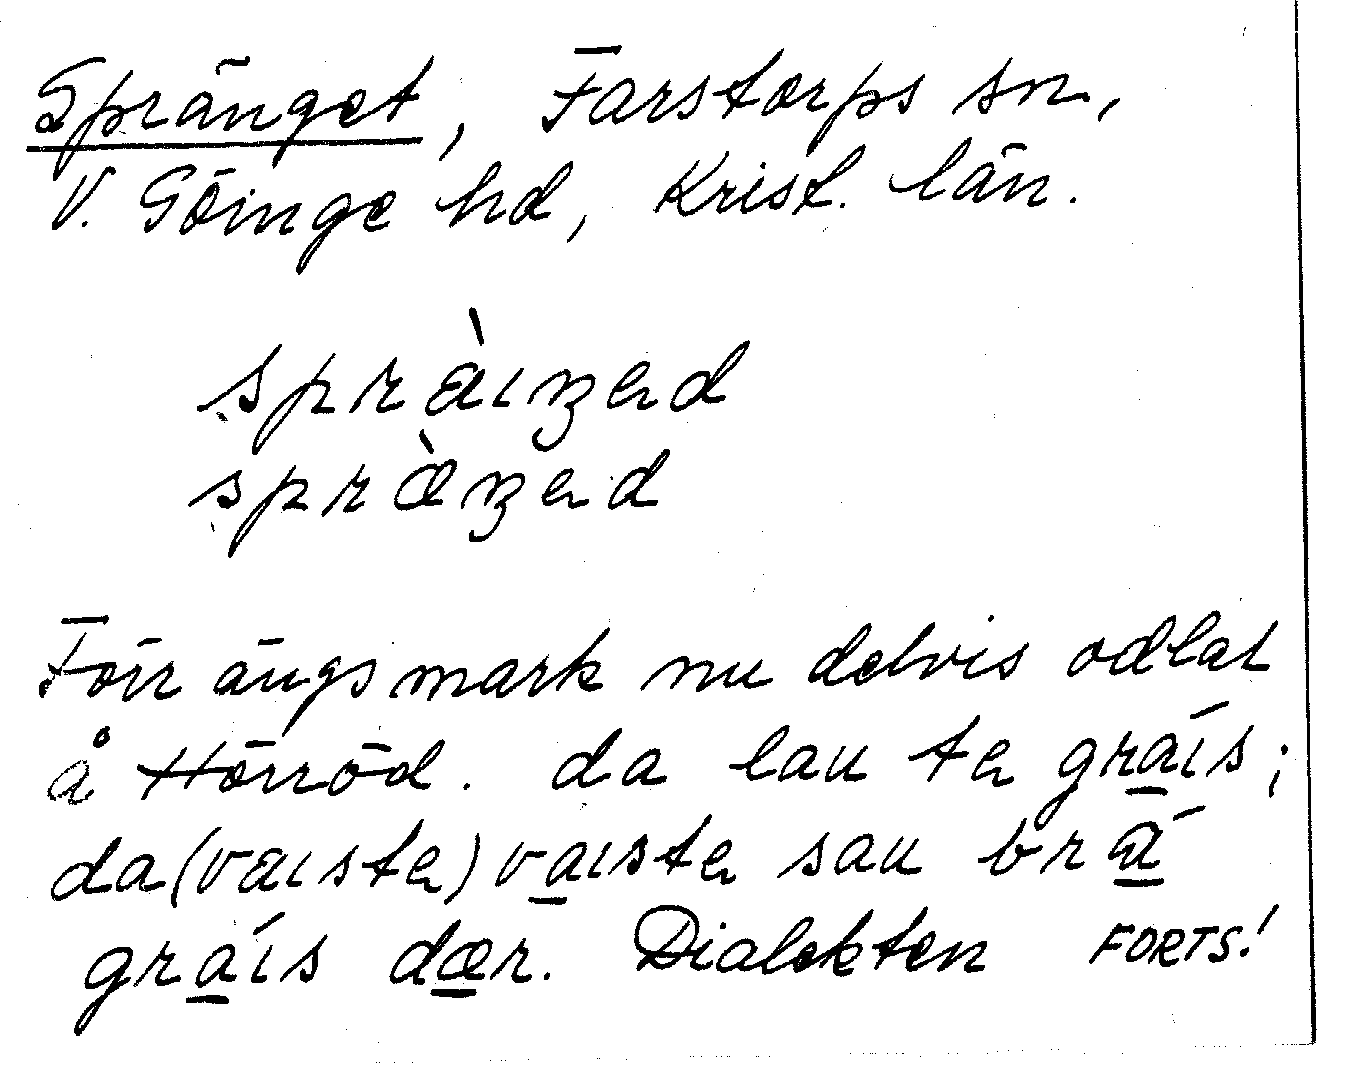 Spränget, Farstorps sn,
V. Göinge hd, Krist. län.
spràıŋəd
spræ̀ŋəd
Förr ängsmark nu delvis odlat
å Hörröd. da lau tə gra̲ıs;
da (vaıstə) va̲ıstə sau bra̲
gra̲ıs dæ̲r. Dialekten FORTS!